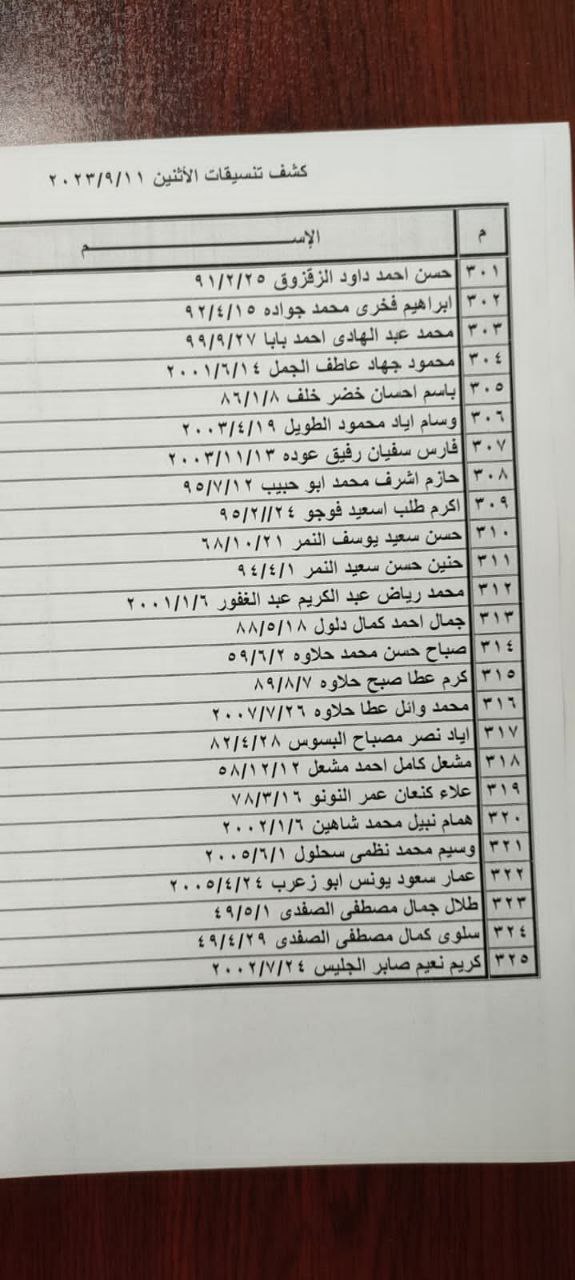 كشف تنسيقات الأثنين ٢٠٢٣/٩/١١
م الإســـــــــــــــــم
٣٠١ حسن احمد داود الزقزوق ٩١/٢/٢٥
٣٠٢ ابراهيم فخرى محمد جواده ٩٢/٤/١٥
٣٠٣ محمد عبد الهادى احمد بابا ٩٩/٩/٢٧
٣٠٤ محمود جهاد عاطف الجمل ٢٠٠١/٦/١٤
٣٠٥ باسم احسان خضر خلف ٨٦/١/٨
٣٠٦ وسام اياد محمود الطويل ٢٠٠٣/٤/١٩
٣٠٧ فارس سفيان رفيق عوده ٢٠٠٣/١١/١٣
٣٠٨ حازم اشرف محمد ابو حبيب ٩٥/٧/١٢
٣٠٩ اكرم طلب اسعيد فوجو ٩٥/٢//٢٤
٣١٠ حسن سعيد يوسف النمر ٦٨/١٠/٢١
٣١١ حنين حسن سعيد النمر ٩٤/٤/١
٣١٢ محمد رياض عبد الكريم عبد الغفور ٢٠٠١/١/٦
٣١٣ جمال احمد كمال دلول ٨٨/٥/١٨
٣١٤ صباح حسن محمد حلاوه ٥٩/٦/٢
٣١٥ كرم عطا صبح حلاوه ٨٩/٨/٧
٣١٦ محمد وائل عطا حلاوه ٢٠٠٧/٧/٢٦
٣١٧ اياد نصر مصباح البسوس ٨٢/٤/٢٨
٣١٨ مشعل كامل احمد مشعل ٥٨/١٢/١٢
٣١٩ علاء كنعان عمر النونو ٧٨/٣/١٦
٣٢٠ همام نبيل محمد شاهين ٢٠٠٢/١/٦
٣٢١ وسيم محمد نظمى سحلول ٢٠٠٥/٦/١
٣٢٢ عمار سعود يونس ابو زعرب ٢٠٠٥/٤/٢٤
٣٢٣ طلال جمال مصطفى الصفدى ٤٩/٥/١
٣٢٤ سلوى كمال مصطفى الصفدى ٤٩/٤/٢٩
٣٢٥ كريم نعيم صابر الجليس ٢٠٠٢/٧/٢٤